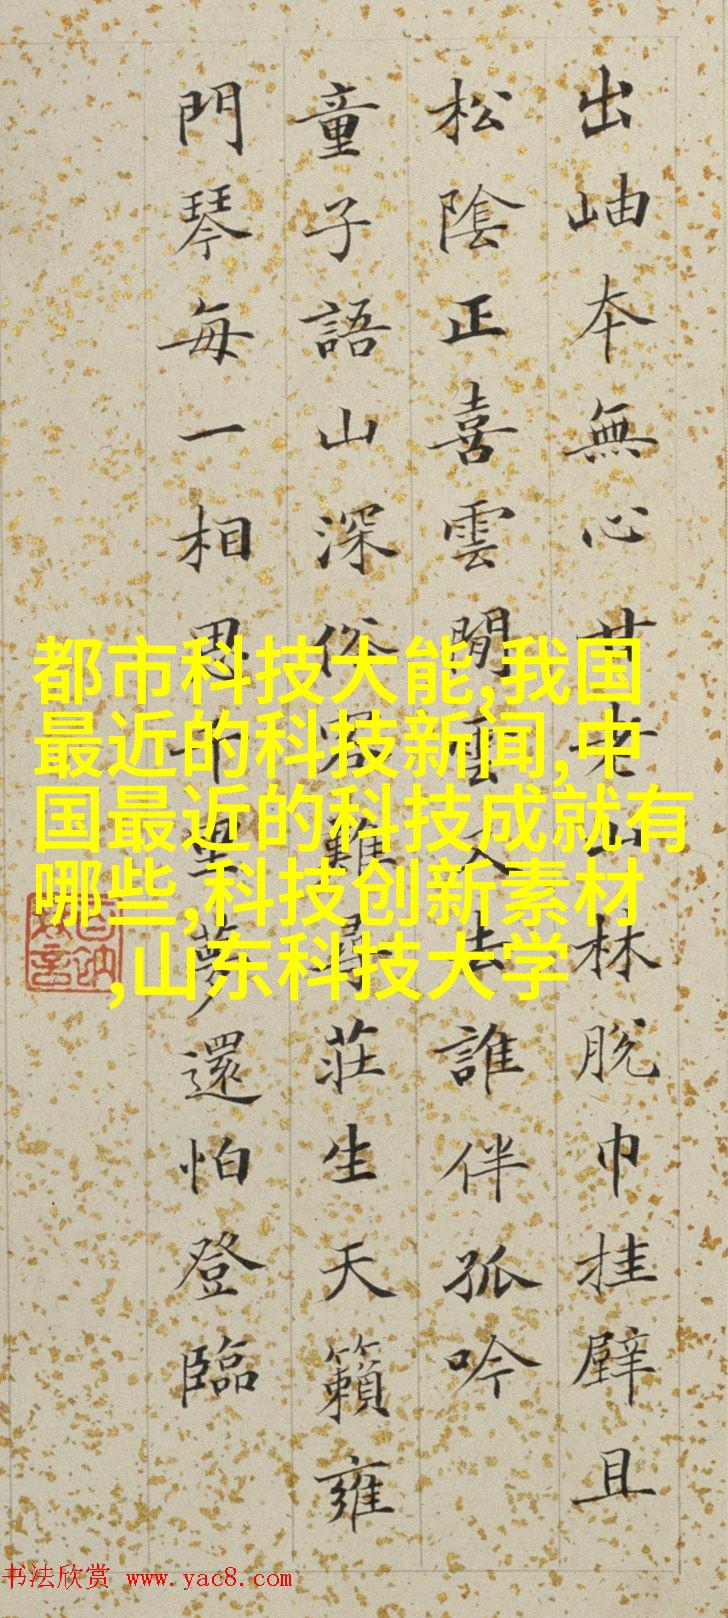 出岫本無心甘老山林脫巾挂壁且
松陰正喜雲閒雲又去誰伴孤吟
童子語山深俗客難尋莊生天籟雍
門琴每一相思千里夢還怕登臨
都市科技大能,我国
最近的科技新闻,中
国最近的科技成就有
哪些,科技创新素材
,山东科技大学
书法欣赏 www.yac8.com